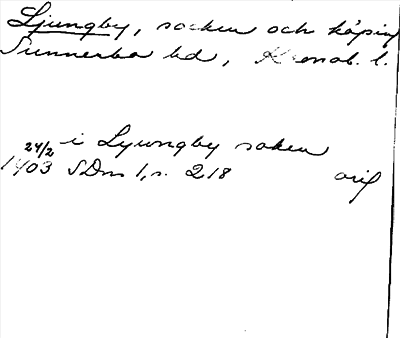 Ljungby, socken och köping
Sunnerbo hd, Kronob. l.
24/2 i Lyungby soken
1403 SDns 1, s. 218 orig